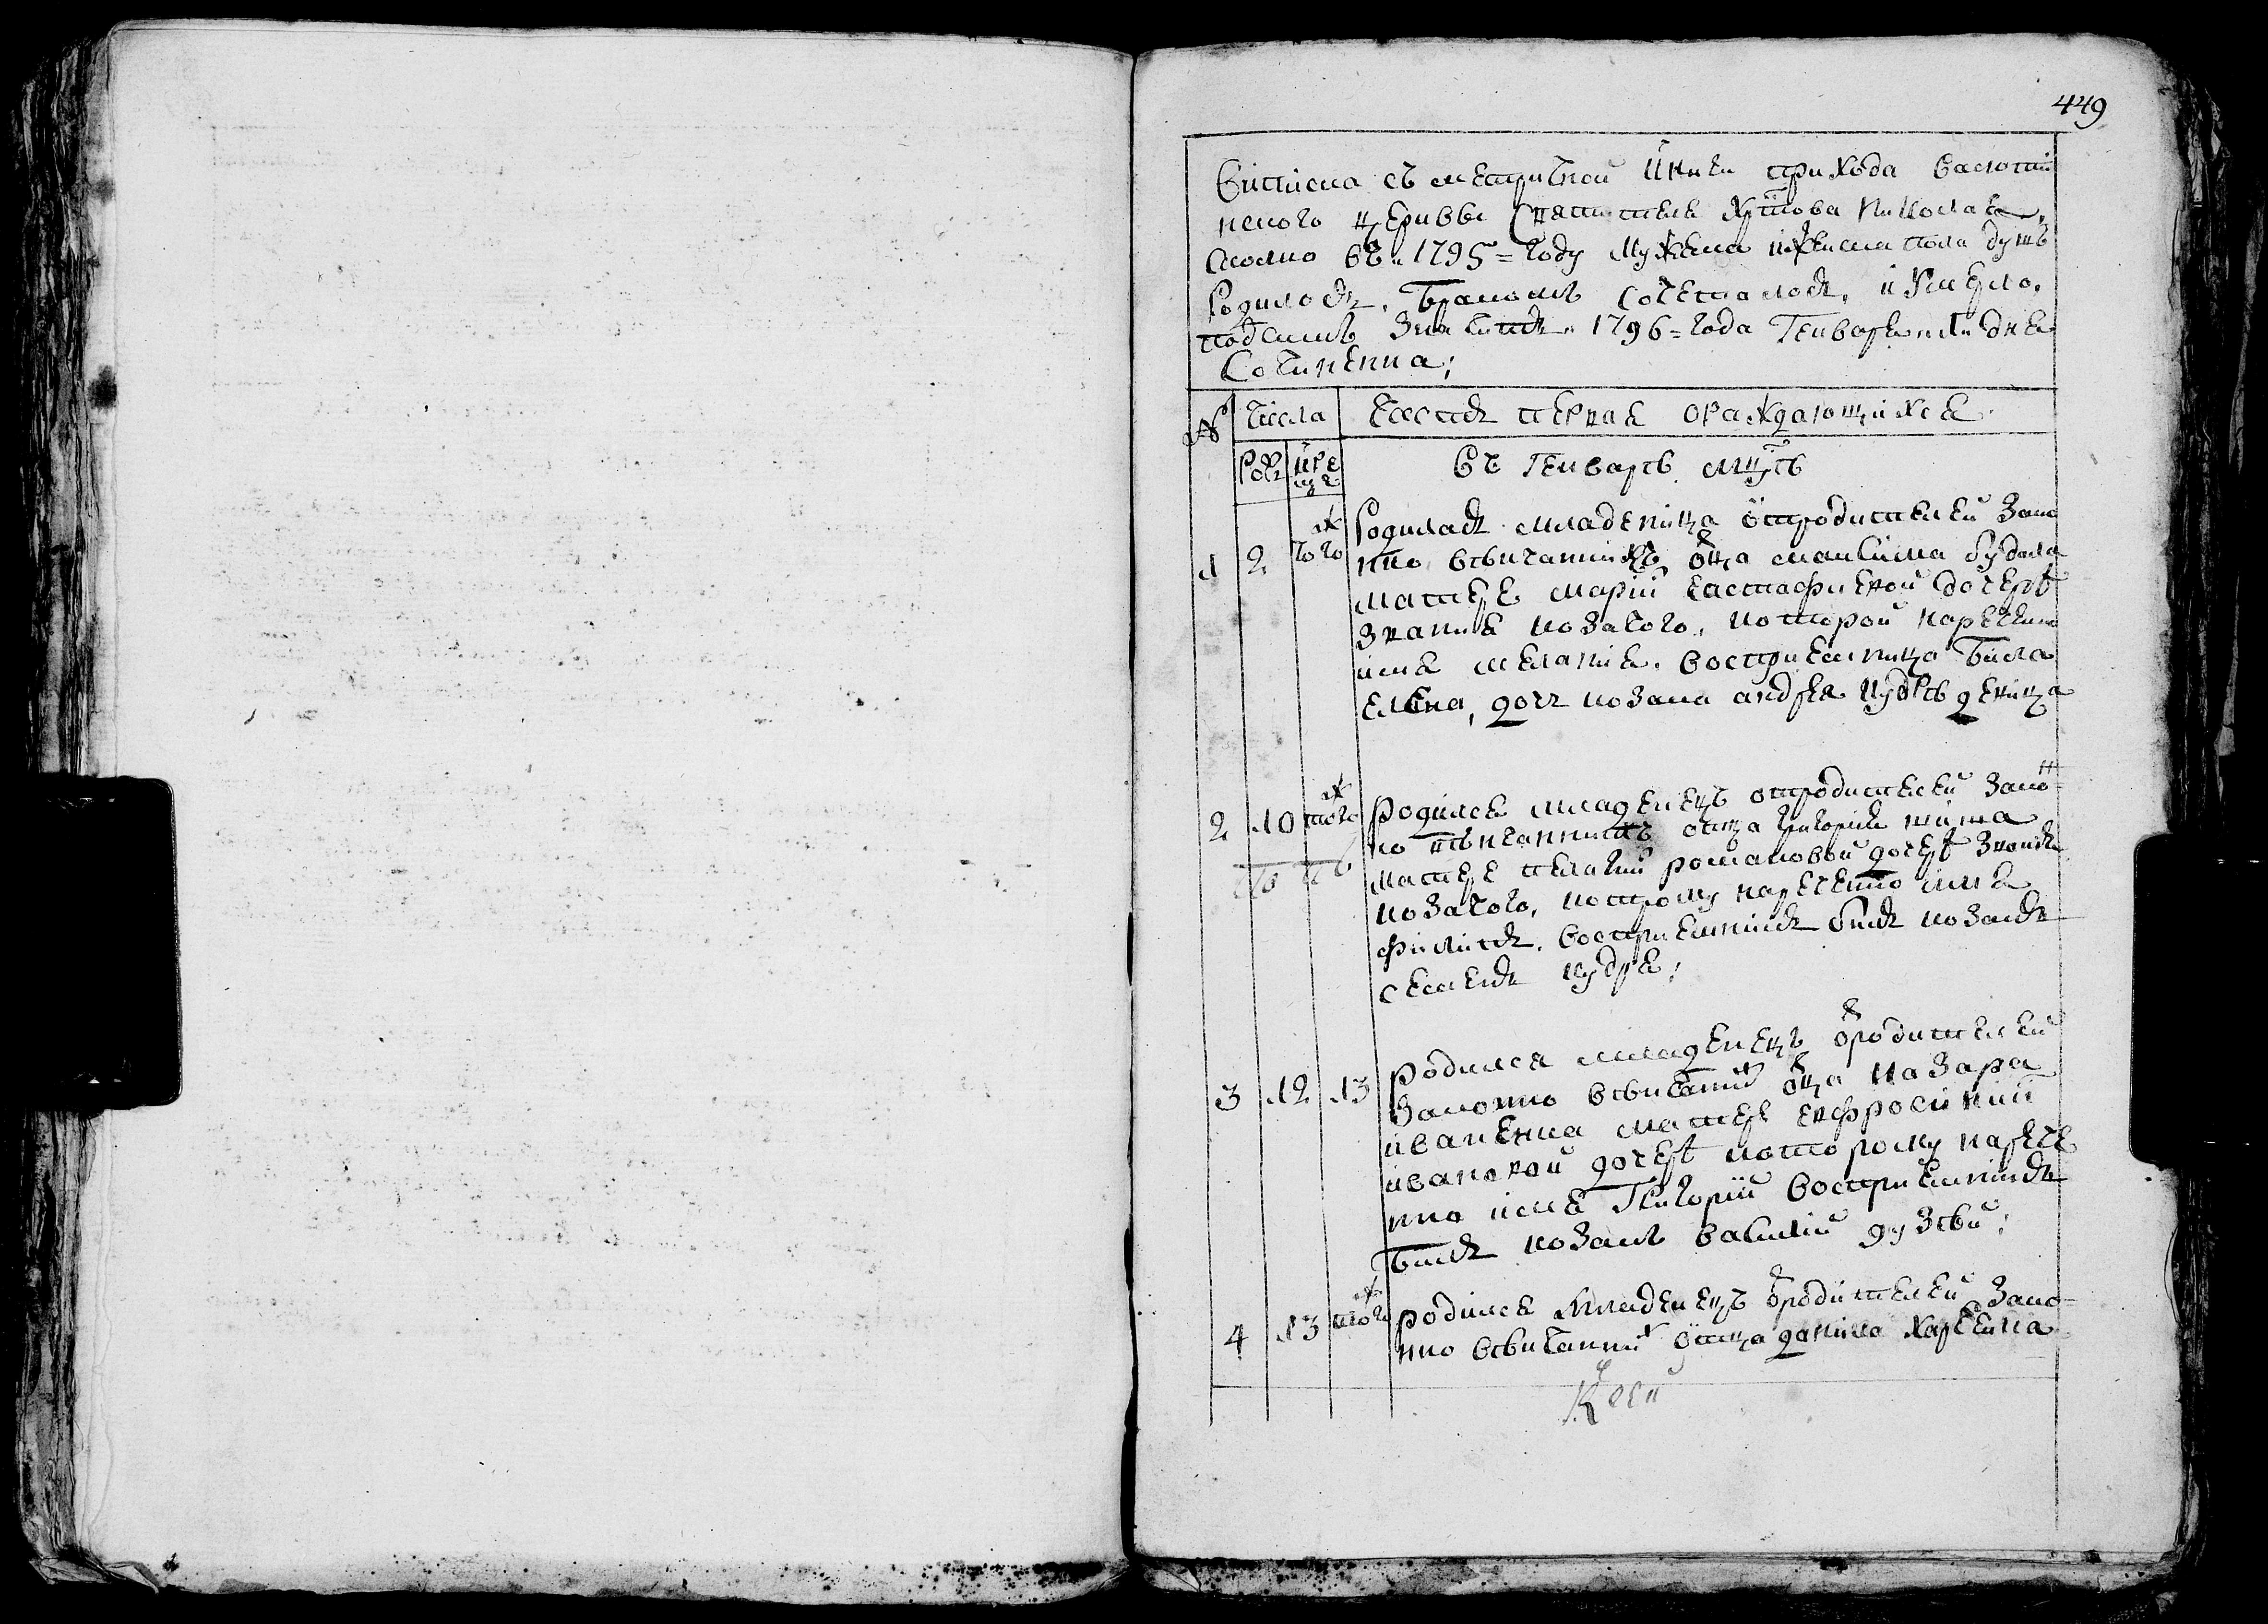 449
Виписка съ метричной книги прихода
ского церкви Святителя Христова Николая,
сколко въ 1795 = году мужеска и женска пола душъ
родилось, бракомъ сочеталось, и умерло,
подъ симъ значится 1796 = года Генваря 1 дня
Сочиненна;
№ Числа Часть первая о раждающихся
Род кре
ще Въ Генваръ мцъ
1 2 того ж Родилась младеница от родителей Зако
нно вѣнчаннихъ, отца Максима Рудака
матере Марїи Евстафиевой дочерѣ
звания козачого, которой наречено
имя Мелания. восприемница била
Елена, дочь козака андрея кудрѣ девица
2 10 того ж Родился младенецъ от родителей зако
но вѣнчаннихъ отца Григорія
матере Пелагии романовой дочерѣ званія
козачого, которому наречено имя
филипъ, восприемникъ билъ козакъ
семенъ кудря;
3 12 13 родился младенецъ от родителей
Законно вѣнчанних отца назара
иваненка матере евфросинии
ивановой дочерѣ которому нарече
нно имя Григорий восприемникъ
билъ козакъ василий дузѣй;
4 13 того ж родился Младенецъ от родителей Зако
нно вѣнчанних отца данила